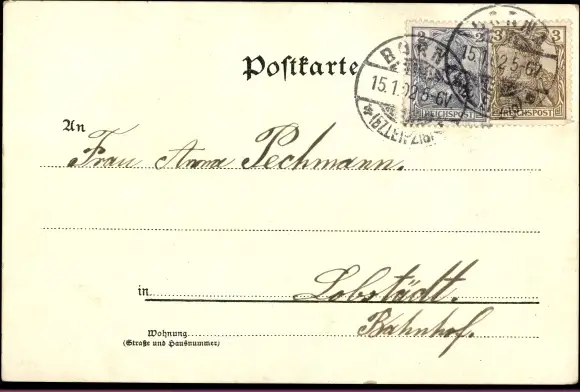 Postkarte
2 2 3 3
REICHSPOST REICHSPOST
BORNA
15.1.02 5-6V
*(BZ.LEIPZIG)*
An
Frau Anna Pechmann.
in
Lobstädt.
Bahnhof.
Wohnung
(Straße und Hausnummer)